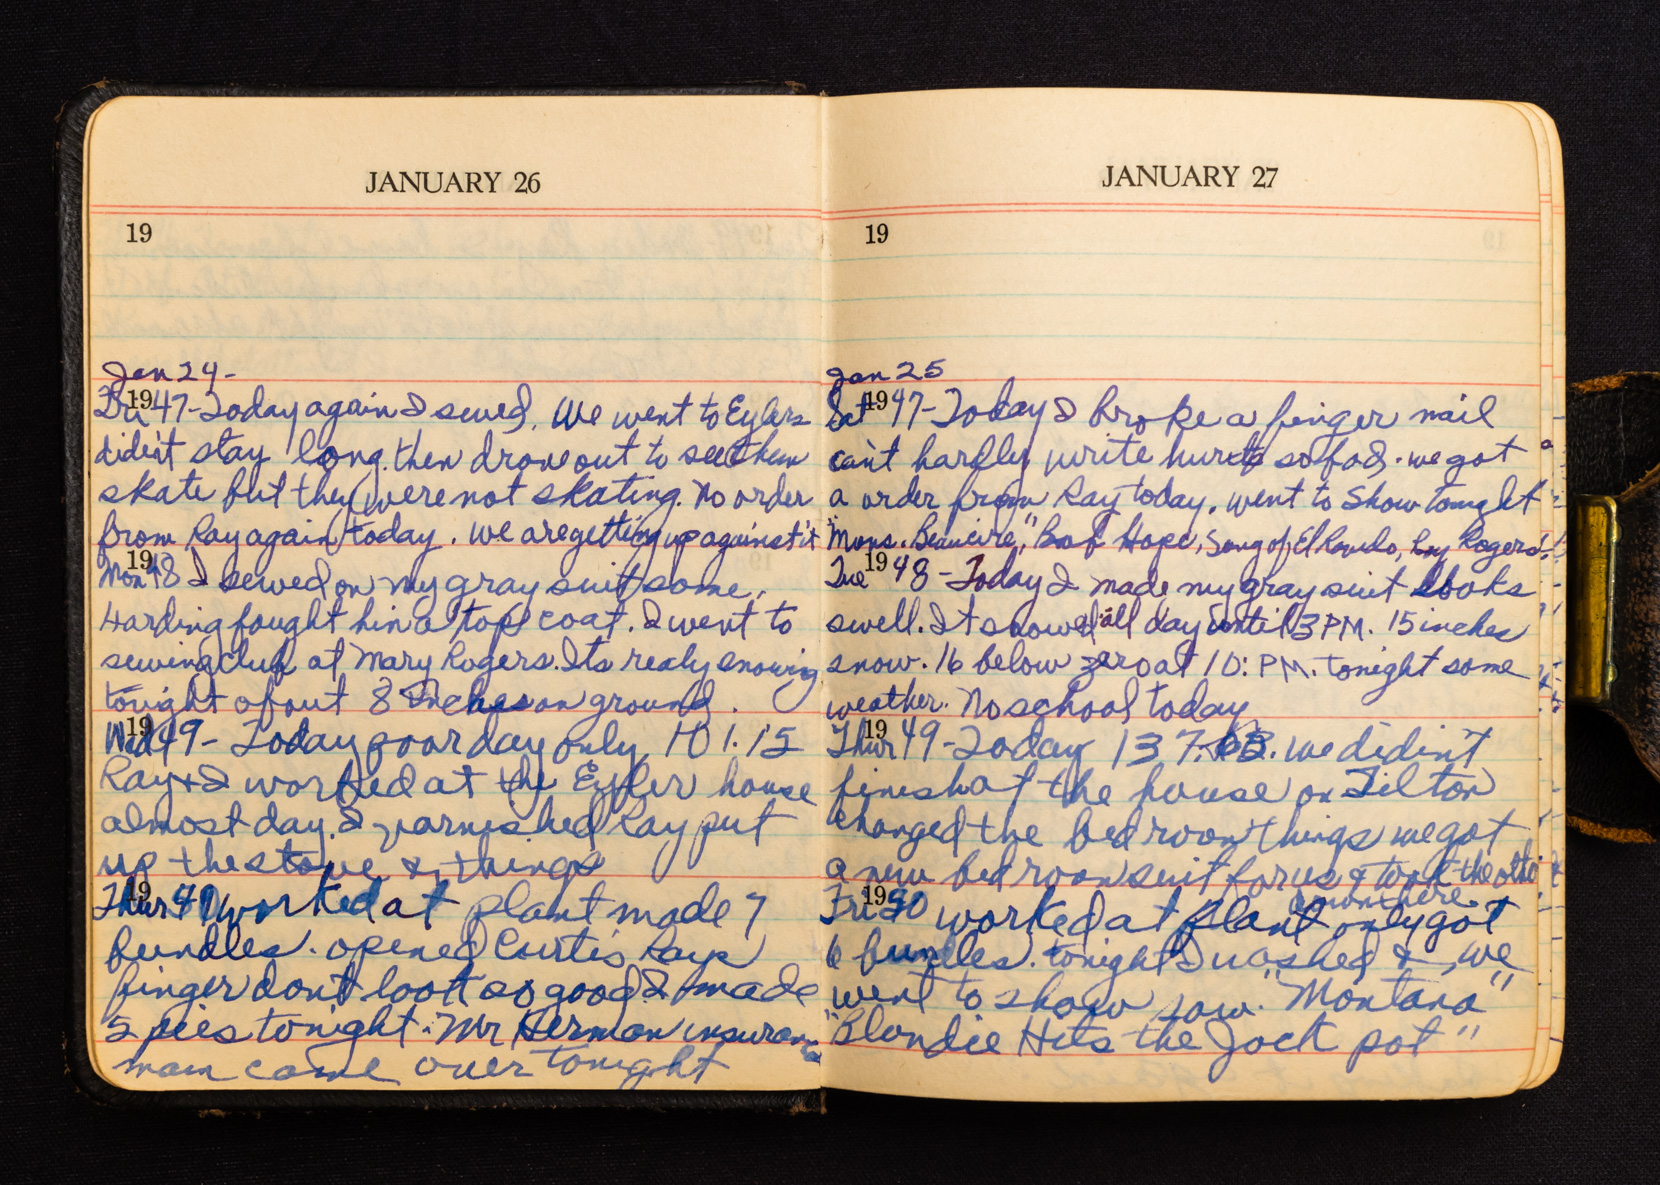 JANUARY 26
19
Jan 24-
19
Fri 47- Today again I sewed. We went to Eylers
did'nt stay long. then drove out to see them
skate but they were not skating. No order
from Ray again today. We are getting up against it
19
Mon 48 I sewed on my gray suit some.
Harding bought him a top coat. I went to
sewing club at Mary Rogers. Its realy snowing
tonight about 8 inches on ground.
19
Wed 49- Today poor day only 101.15
Ray & I worked at the Eyler house
almost day. I varnished Ray put
up the stove & things
19
Thur worked at plant made 7
bundles. opened Curtis Rays
finger dont look so good I made
5 pies tonight. Mr Herman insurance
man came over tonight
JANUARY 27
19
Jan 25
19
Sat 47- Today I broke a finger nail
can't hardly write hurts so bad. we got
a order from Ray today. went to Show tonight
"Mons. Beaucire," Bob Hope, Song of El Ray Rogers
19
Tue 48- Today I made my gray suit looks
swell. It snowed all day until 3 PM. 15 inches
snow. 16 below zero at 10: PM. tonight some
weather. No school today
19
Thur 49- Today 137. we did'n't
finish at the house on Tilton
changed the bed room things we got
a new bed room suit for us & took the other
down there.
19
Fri 50 worked at plant only got
6 bundles. tonight I washed & we
went to show saw. "Montana"
"Blondie Hits the Jack pot"